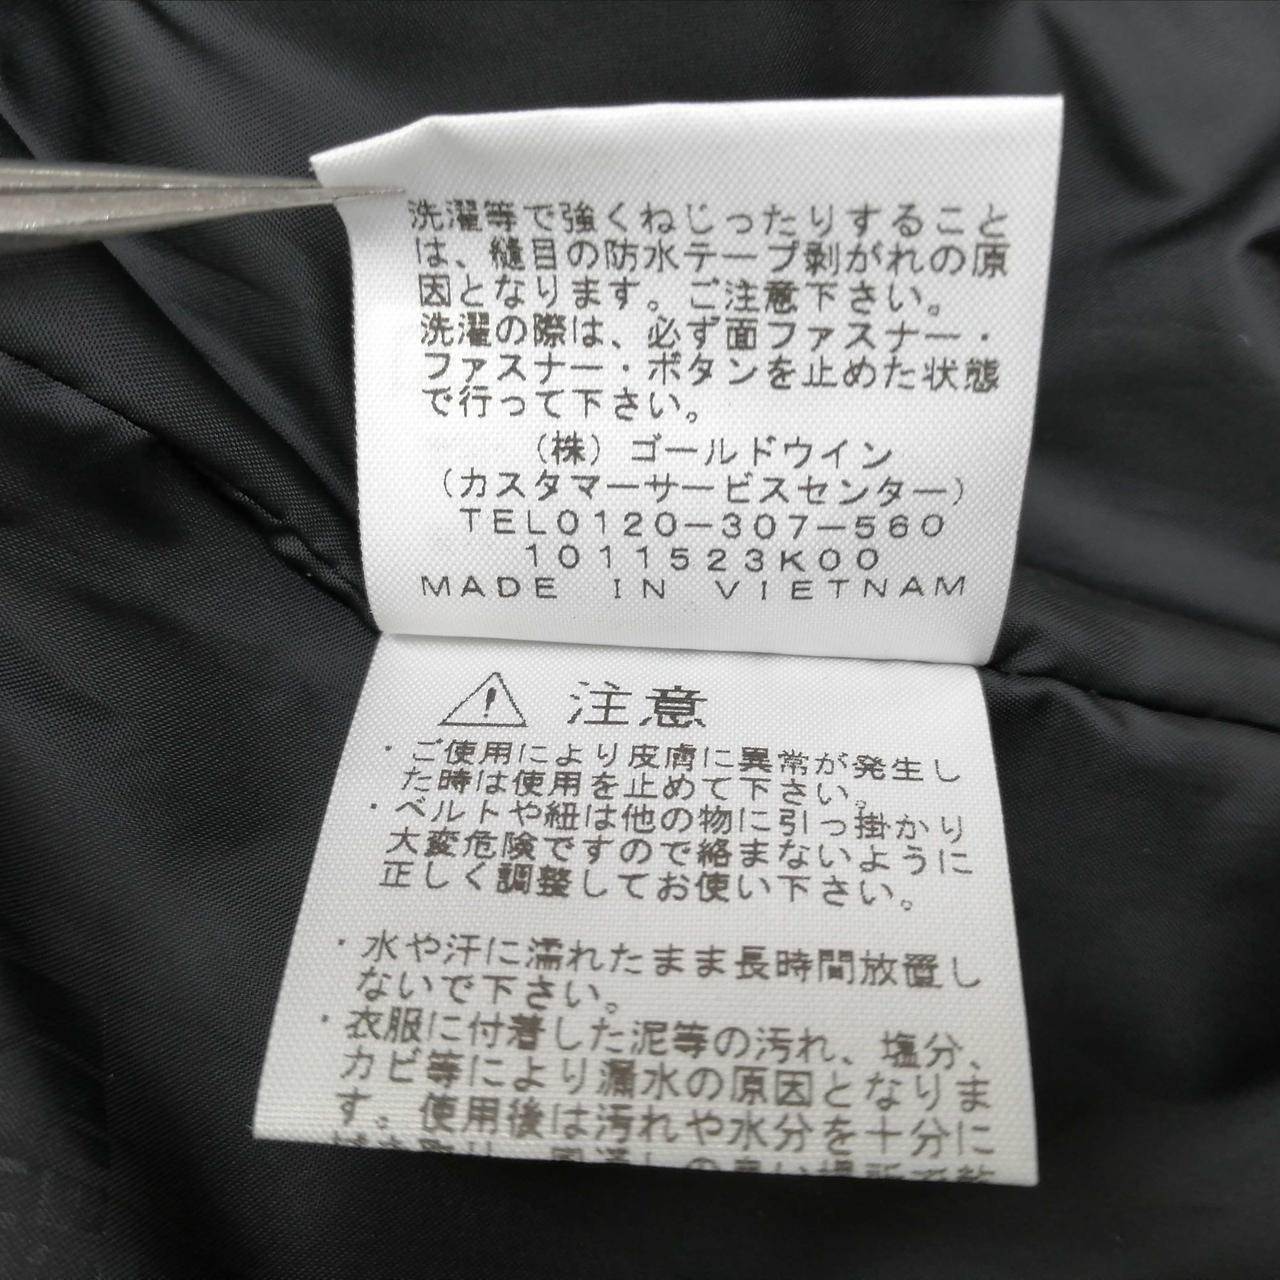 洗濯等で強くねじったりすること
は、縫目の防水テープ剥がれの原
因となります。ご注意下さい。
洗濯の際は、必ず面ファスナー・
ファスナー・ボタンを止めた状態
で行って下さい。
（株）ゴールドウイン
（カスタマーサービスセンター）
TEL0120-307-560
1011523K00
MADE IN VIETNAM
注意
・ご使用により皮膚に異常が発生し
た時は使用を止めて下さい。
・ベルトや紐は他の物に引っ掛かり
大変危険ですので絡まないように
正しく調整してお使い下さい。
・水や汗に濡れたまま長時間放置し
ないで下さい。
・衣服に付着した泥等の汚れ、塩分、
カビ等により漏水の原因となりま
す。使用後は汚れや水分を十分に